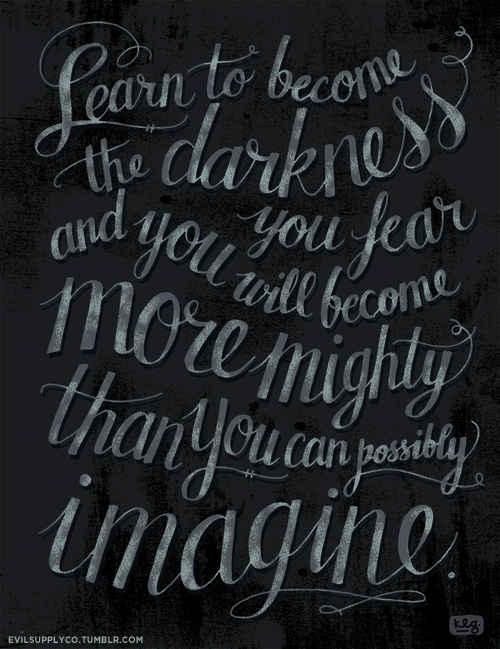 Learn to become
the darkness
you fear
and you will become
more mighty
than you can possibly
imagine.
klg.
EVILSUPPLYCO.TUMBLR.COM